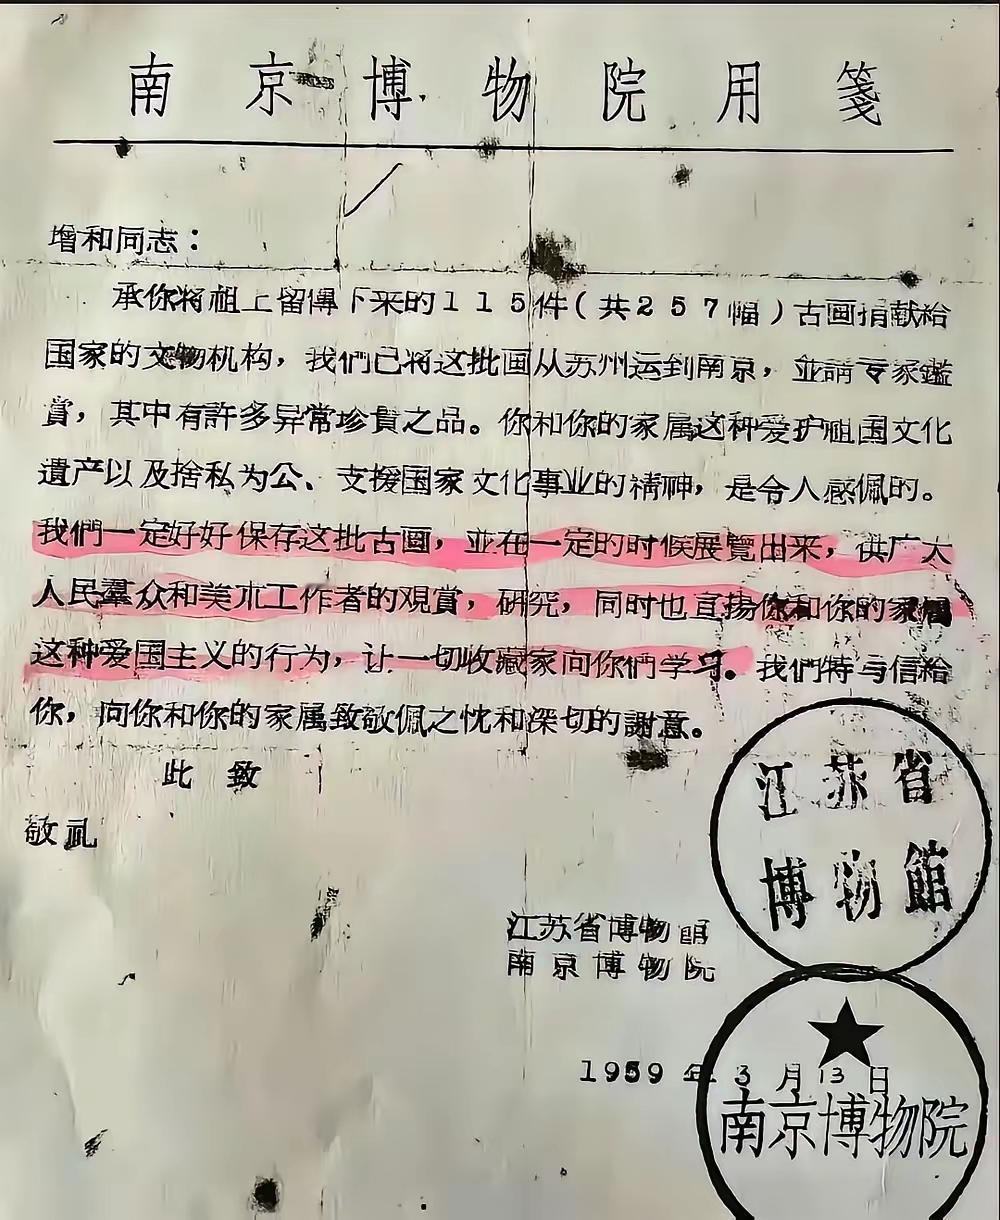 南京博物院用笺
增和同志：
承你将祖上留傳下来的115件(共257幅)古画捐献給
国家的文物机构，我們已将这批画从苏州运到南京，並請专家鑑
賞，其中有許多异常珍貴之品。你和你的家属这种爱护祖国文化
遺产以及捨私为公、支援国家文化事业的精神，是令人感佩的。
我們一定好好保存这批古画，並在一定的时候展覽出来，供广大
人民羣众和美术工作者的观賞，研究，同时也宣揚你和你的家属
这种爱国主义的行为，让一切收藏家向你們学习。我們特与信給
你，向你和你的家属致敬佩之忱和深切的謝意。
此致
敬礼
江苏省
博物館
江苏省博物館
南京博物院
1959年3月13日
南京博物院